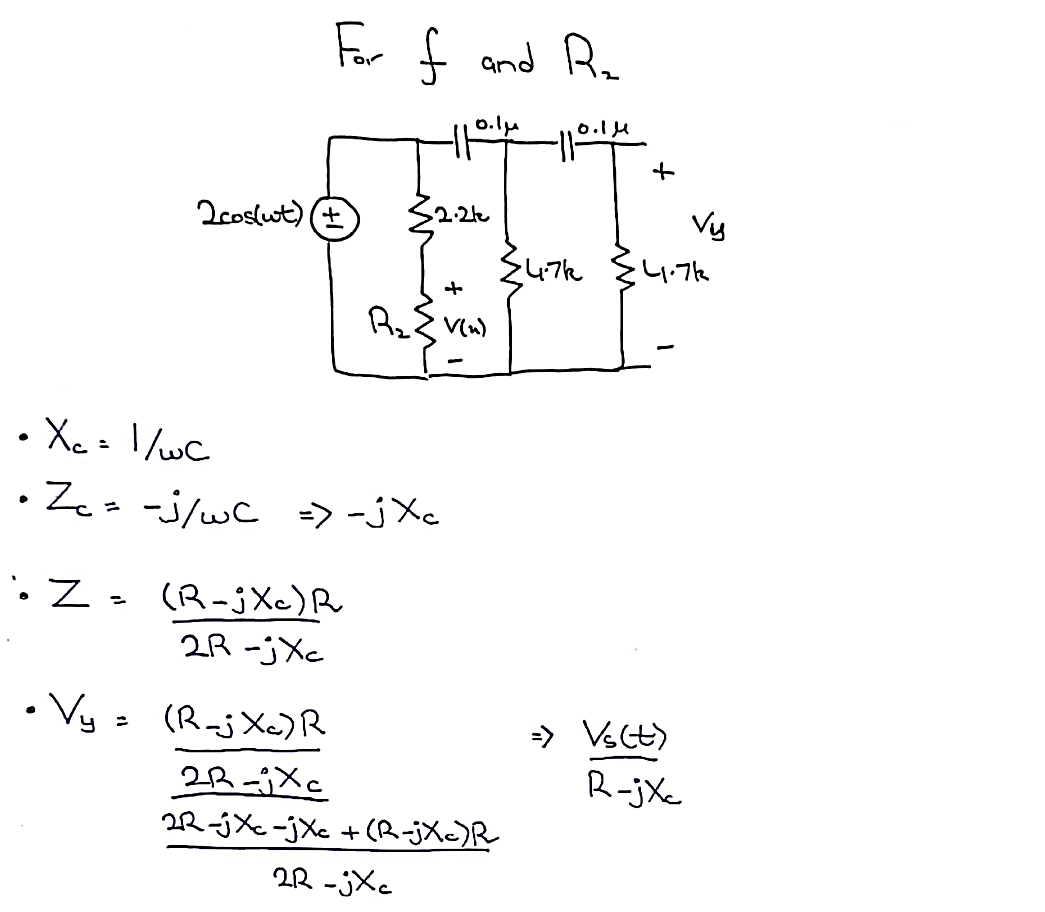 For f and R₂
0.1μ 0.1μ
+
2cos(wt) ± 2.2k Vy
4.7k 4.7k
+
R₂ V(x)
− −
• Xc = 1/ωC
• Zc = -j/ωC => -jXc
• Z = (R-jXc)R
2R -jXc
• Vy = (R-jXc)R => Vs(t)
2R -jXc R-jXc
2R-jXc-jXc + (R-jXc)R
2R -jXc